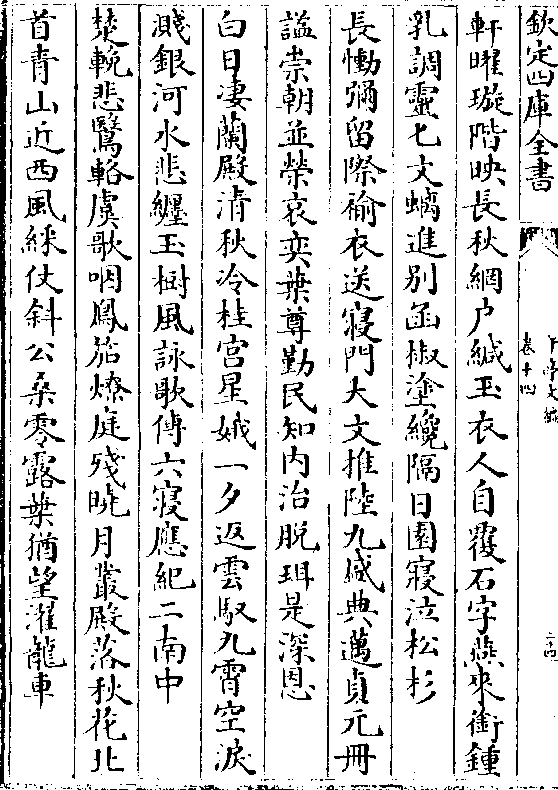 欽定四庫全書
卷十四
軒曜璇階映長秋網户緘玉衣人自覆石字燕來銜鍾
乳調靈七文螭進别函椒塗纔隔日園寢泣松杉
長慟彌留際褕衣送寢門大文推陸九盛典邁貞元冊
諡崇朝並榮哀奕葉尊勤民知内治脱珥是深恩
白日凄蘭殿清秋冷桂宫星娥一夕返雲馭九霄空淚
濺銀河水悲纒玉樹風詠歌傳六寢應紀二南中
楚輓悲鷖輅虞歌咽鳳笳燎庭殘曉月叢殿落秋花北
首青山近西風綵仗斜公桑零露葉猶望濯龍車